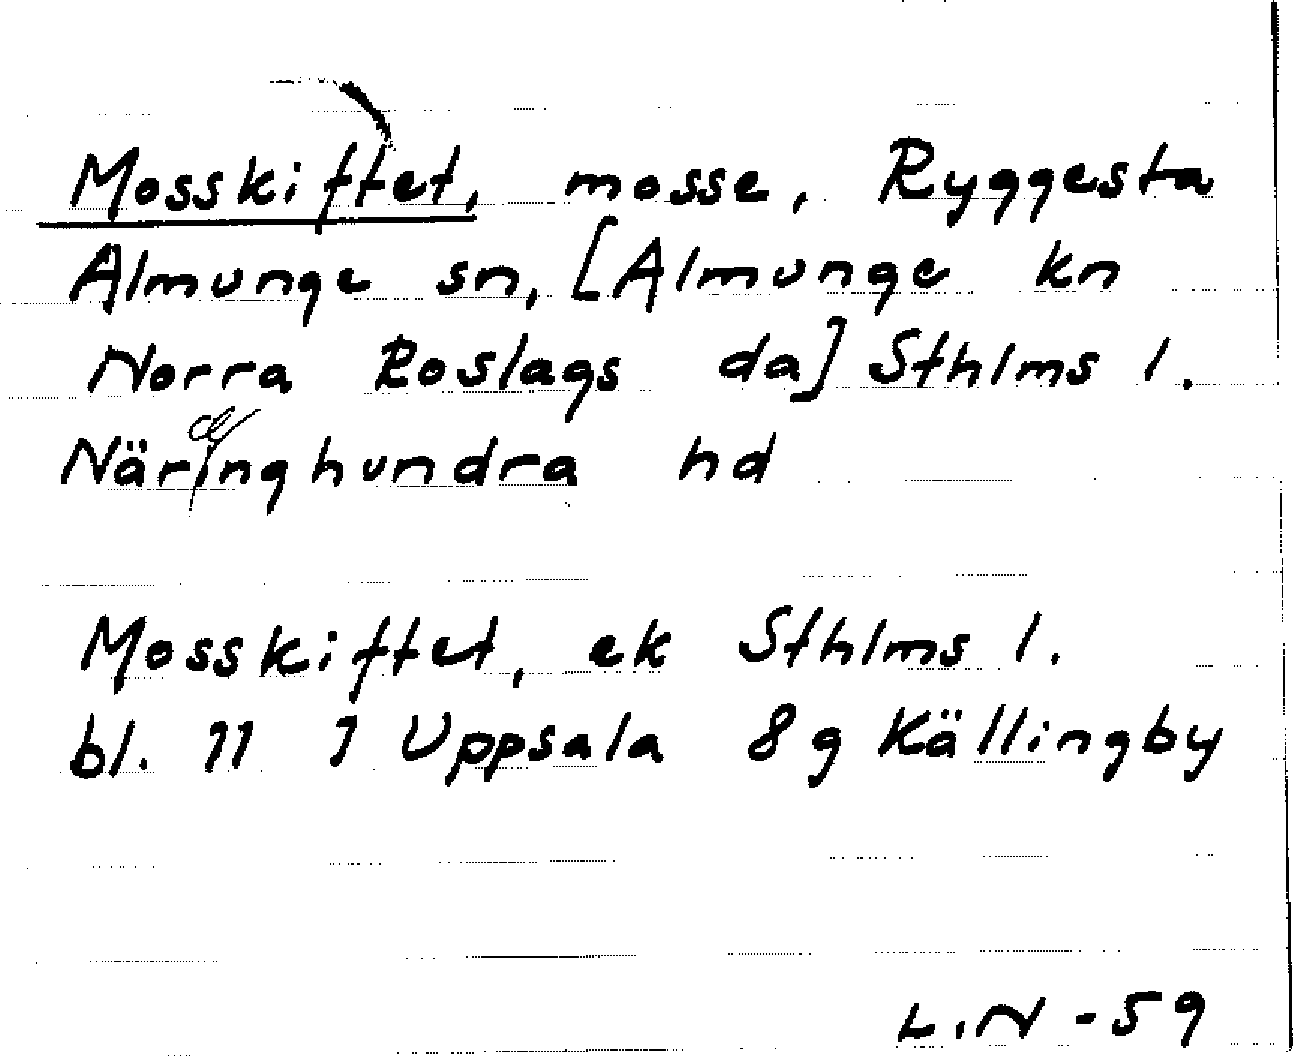 Mosskiftet, mosse, Ryggesta
Almunge sn, [Almunge kn
Norra Roslags da] Sthlms l.
Näringhundra hd
Mosskiftet, ek Sthlms l.
bl. 11 I Uppsala 8g Källingby
L.N -59